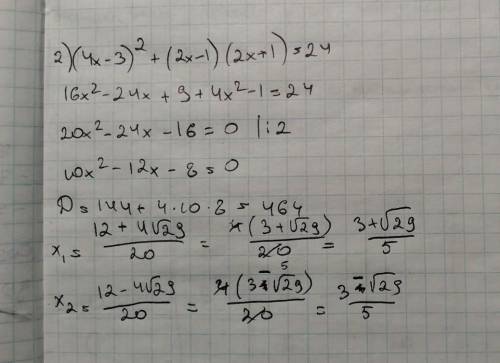 2) (4x-3)² + (2x-1) (2x+1) = 24
16x² - 24x + 9 + 4x² - 1 = 24
20x² - 24x - 16 = 0 |:2
10x² - 12x - 8 = 0
D = 144 + 4·10·8 = 464
x₁ = (12 + 4√29)/20 = 4(3 + √29)/20 5 = (3 + √29)/5
x₂ = (12 - 4√29)/20 = 4(3 - √29)/20 = (3 - √29)/5